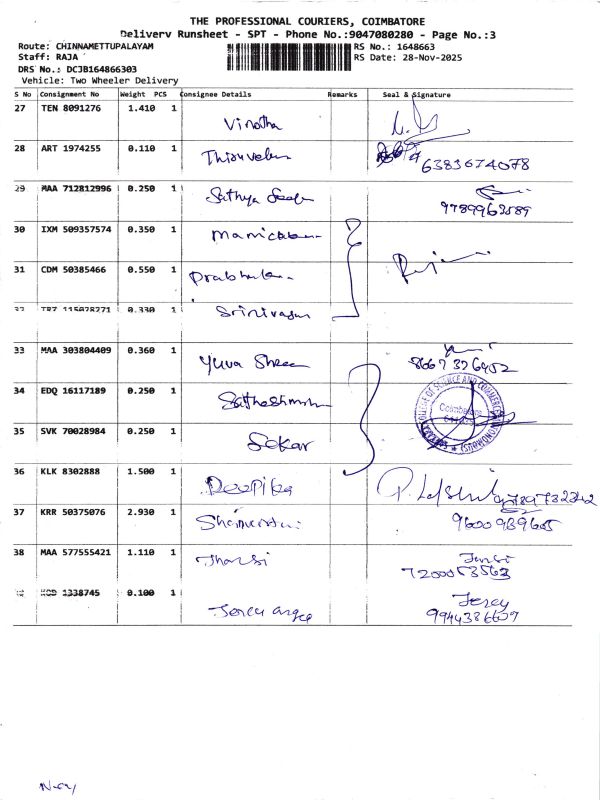 THE PROFESSIONAL COURIERS, COIMBATORE
Delivery Runsheet - SPT - Phone No.:9047080280 - Page No.:3
Route: CHINNAMETTUPALAYAM RS No.: 1648663
Staff: RAJA RS Date: 28-Nov-2025
DRS No.: DCJB164866303
Vehicle: Two Wheeler Delivery
S No Consignment No Weight PCS Consignee Details Remarks Seal & Signature
27 TEN 8091276 1.410 1
Vinotha
28 ART 1974255 0.110 1
6383674078
29 MAA 712812996 0.250 1
Sathya
9789962589
30 IXM 509357574 0.350 1
31 CDM 50385466 0.550 1
32 115028271 0.330 1
Srinivasan
33 MAA 303804409 0.360 1
Yuva Shree
8667376952
34 EDQ 16117189 0.250 1
COLLEGE OF SCIENCE AND COMMERCE
Coimbatore
35 SVK 70028984 0.250 1
Sekar
36 KLK 8302888 1.500 1
Deepika
37 KRR 50375076 2.930 1
38 MAA 577555421 1.110 1
Thansi
7200053563
1338745 0.100 1
Jercy
9944386609